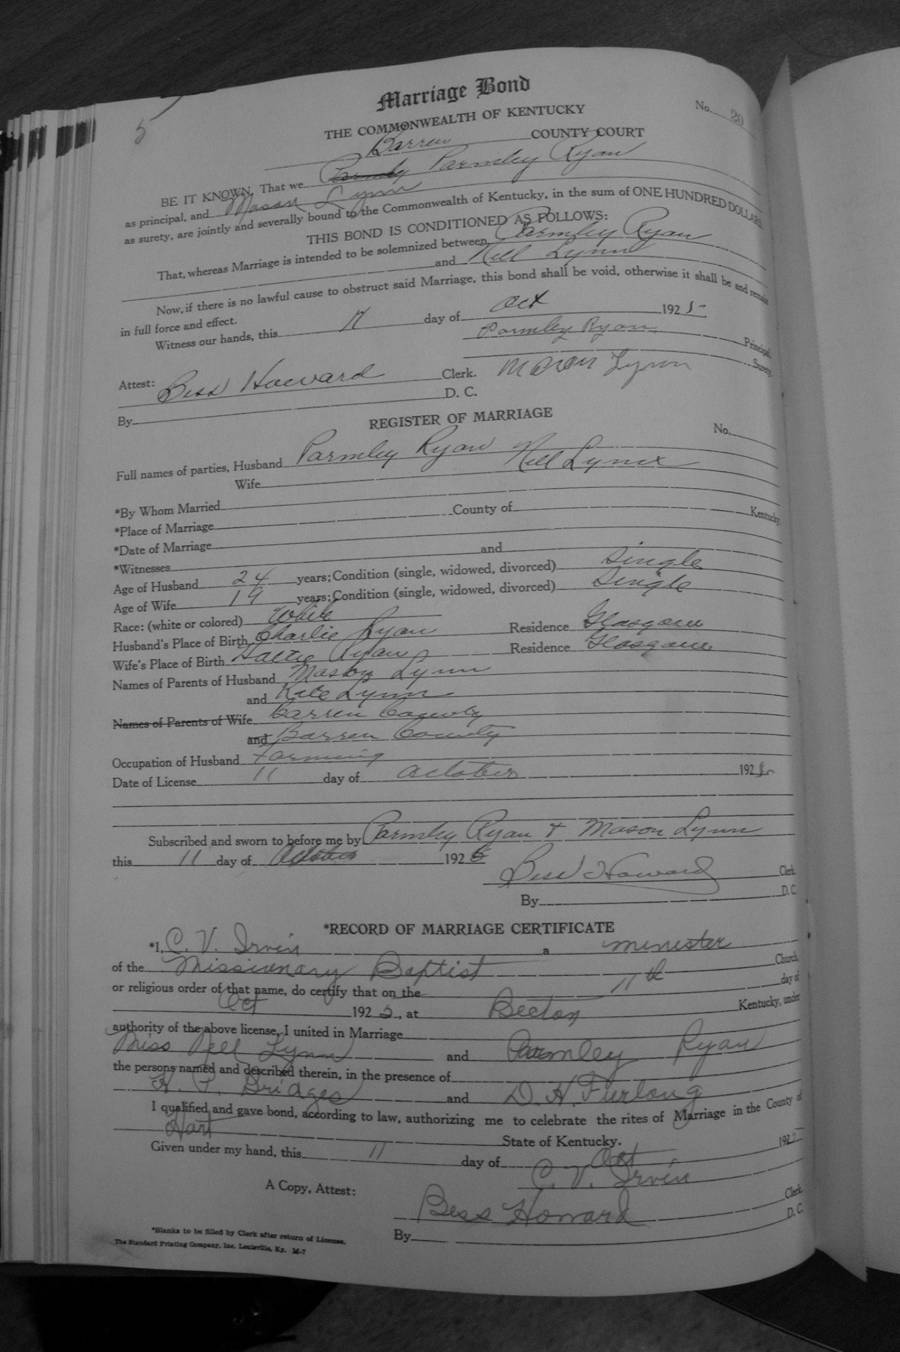 5
Marriage Bond
No. 20
THE COMMONWEALTH OF KENTUCKY
Barren COUNTY COURT
BE IT KNOWN, That we Parmley Ryan
as principal, and Mason Lynn
as surety, are jointly and severally bound to the Commonwealth of Kentucky, in the sum of ONE HUNDRED DOLLARS
THIS BOND IS CONDITIONED AS FOLLOWS:
That, whereas Marriage is intended to be solemnized between Parmley Ryan
and Nell Lynn
Now, if there is no lawful cause to obstruct said Marriage, this bond shall be void, otherwise it shall be and remain
in full force and effect.
Witness our hands, this 11 day of Oct 192 5
Parmley Ryan Principal
Attest: Bess Howard Clerk. Mason Lynn Surety
By D. C.
REGISTER OF MARRIAGE
No.
Full names of parties, Husband Parmley Ryan
Wife Nell Lynn
*By Whom Married
*Place of Marriage County of Kentucky
*Date of Marriage
*Witnesses and
Age of Husband 24 years; Condition (single, widowed, divorced) Single
Age of Wife 19 years; Condition (single, widowed, divorced) Single
Race: (white or colored) White
Husband's Place of Birth Charlie Ryan Residence Glasgow
Wife's Place of Birth Ryan Residence Glasgow
Names of Parents of Husband Mason Lynn
and Kate Lynn
Names of Parents of Wife Barren County
and Barren County
Occupation of Husband Farming
Date of License 11 day of October 192
Subscribed and sworn to before me by Parmley Ryan & Mason Lynn
this 11 day of October 192 5
Bess Howard Clerk
By D. C.
*RECORD OF MARRIAGE CERTIFICATE
*I, C. V. Irvin a minister
of the Missionary Baptist Church,
or religious order of that name, do certify that on the 11th day of
Oct 192 5, at Becton Kentucky, under
authority of the above license, I united in Marriage
Miss Nell Lynn and Parmley Ryan
the persons named and described therein, in the presence of
H. P. Bridges and D. H. Furlong
I qualified and gave bond, according to law, authorizing me to celebrate the rites of Marriage in the County of
Hart State of Kentucky.
Given under my hand, this 11 day of Oct 192
C. V. Irvin
A Copy, Attest: Bess Howard Clerk
By D. C.
*Blanks to be filled by Clerk after return of License.
The Standard Printing Company, Inc. Louisville, Ky. M-7